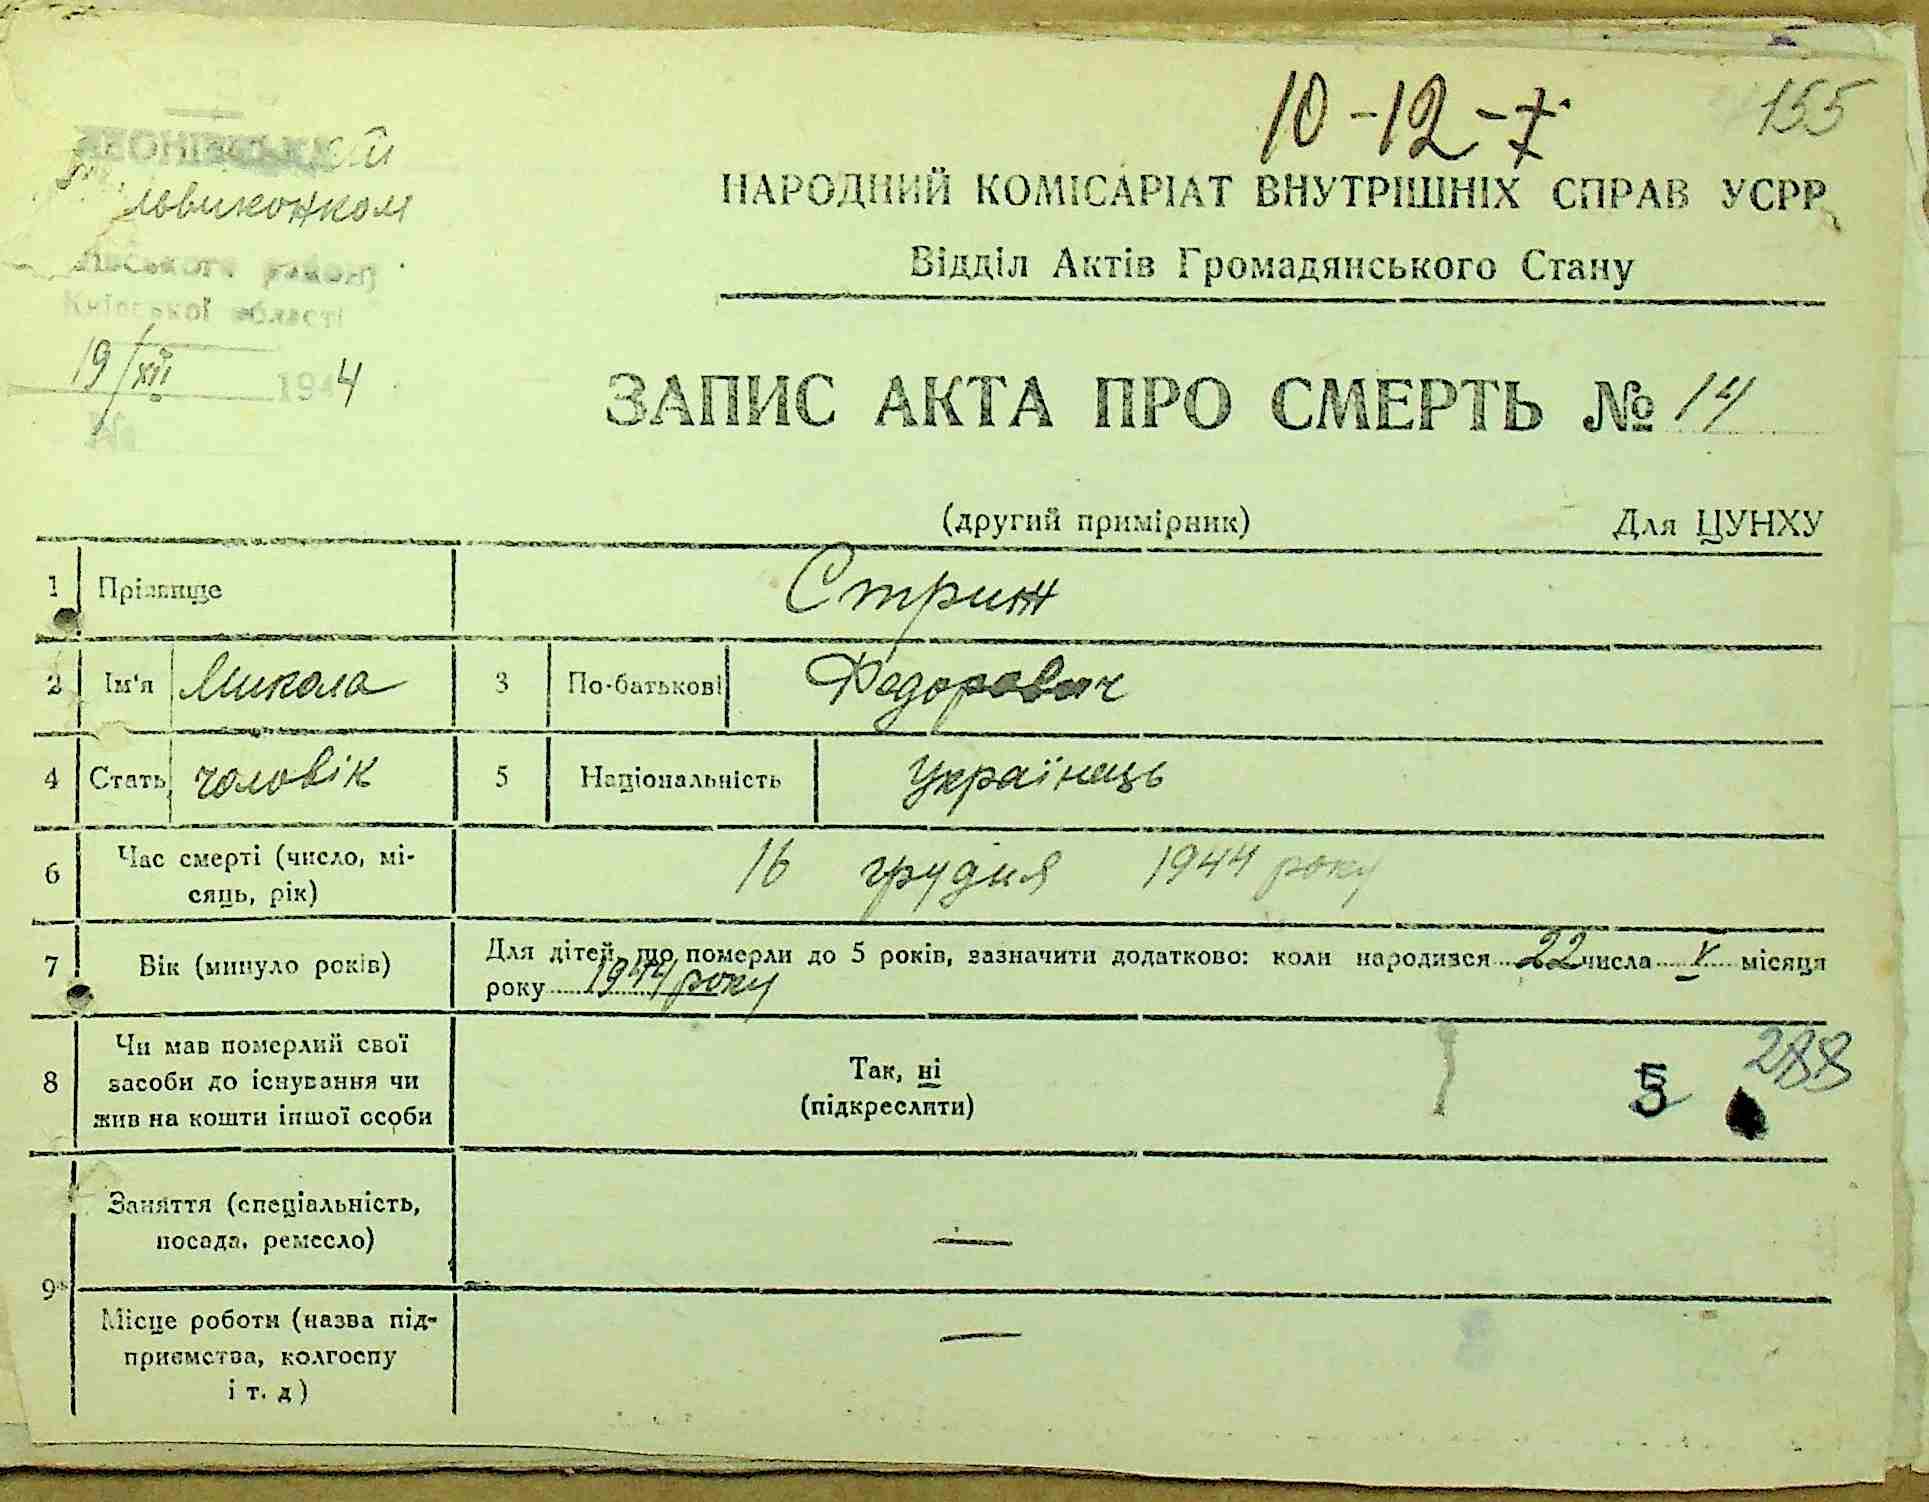 10-12-7
155
львиконком
району
Київської області
19/XII 1944
№
НАРОДНИЙ КОМІСАРІАТ ВНУТРІШНІХ СПРАВ УСРР
Відділ Актів Громадянського Стану
ЗАПИС АКТА ПРО СМЕРТЬ № 14
(другий примірник) Для ЦУНХУ
1 Прізвище Стриж
2 Ім'я Микола 3 По-батькові Федорович
4 Стать чоловік 5 Національність Українець
6 Час смерті (число, мі-
сяць, рік) 16 грудня 1944 року
7 Вік (минуло років) Для дітей, що померли до 5 років, зазначити додатково: коли народився 22 числа V місяця
року 1944 року
8 Чи мав померлий свої
засоби до існування чи
жив на кошти іншої особи
Так, ні
(підкреслити)
5 288
9 Заняття (спеціальність,
посада, ремесло) —
Місце роботи (назва під-
приємства, колгоспу
і т. д) —